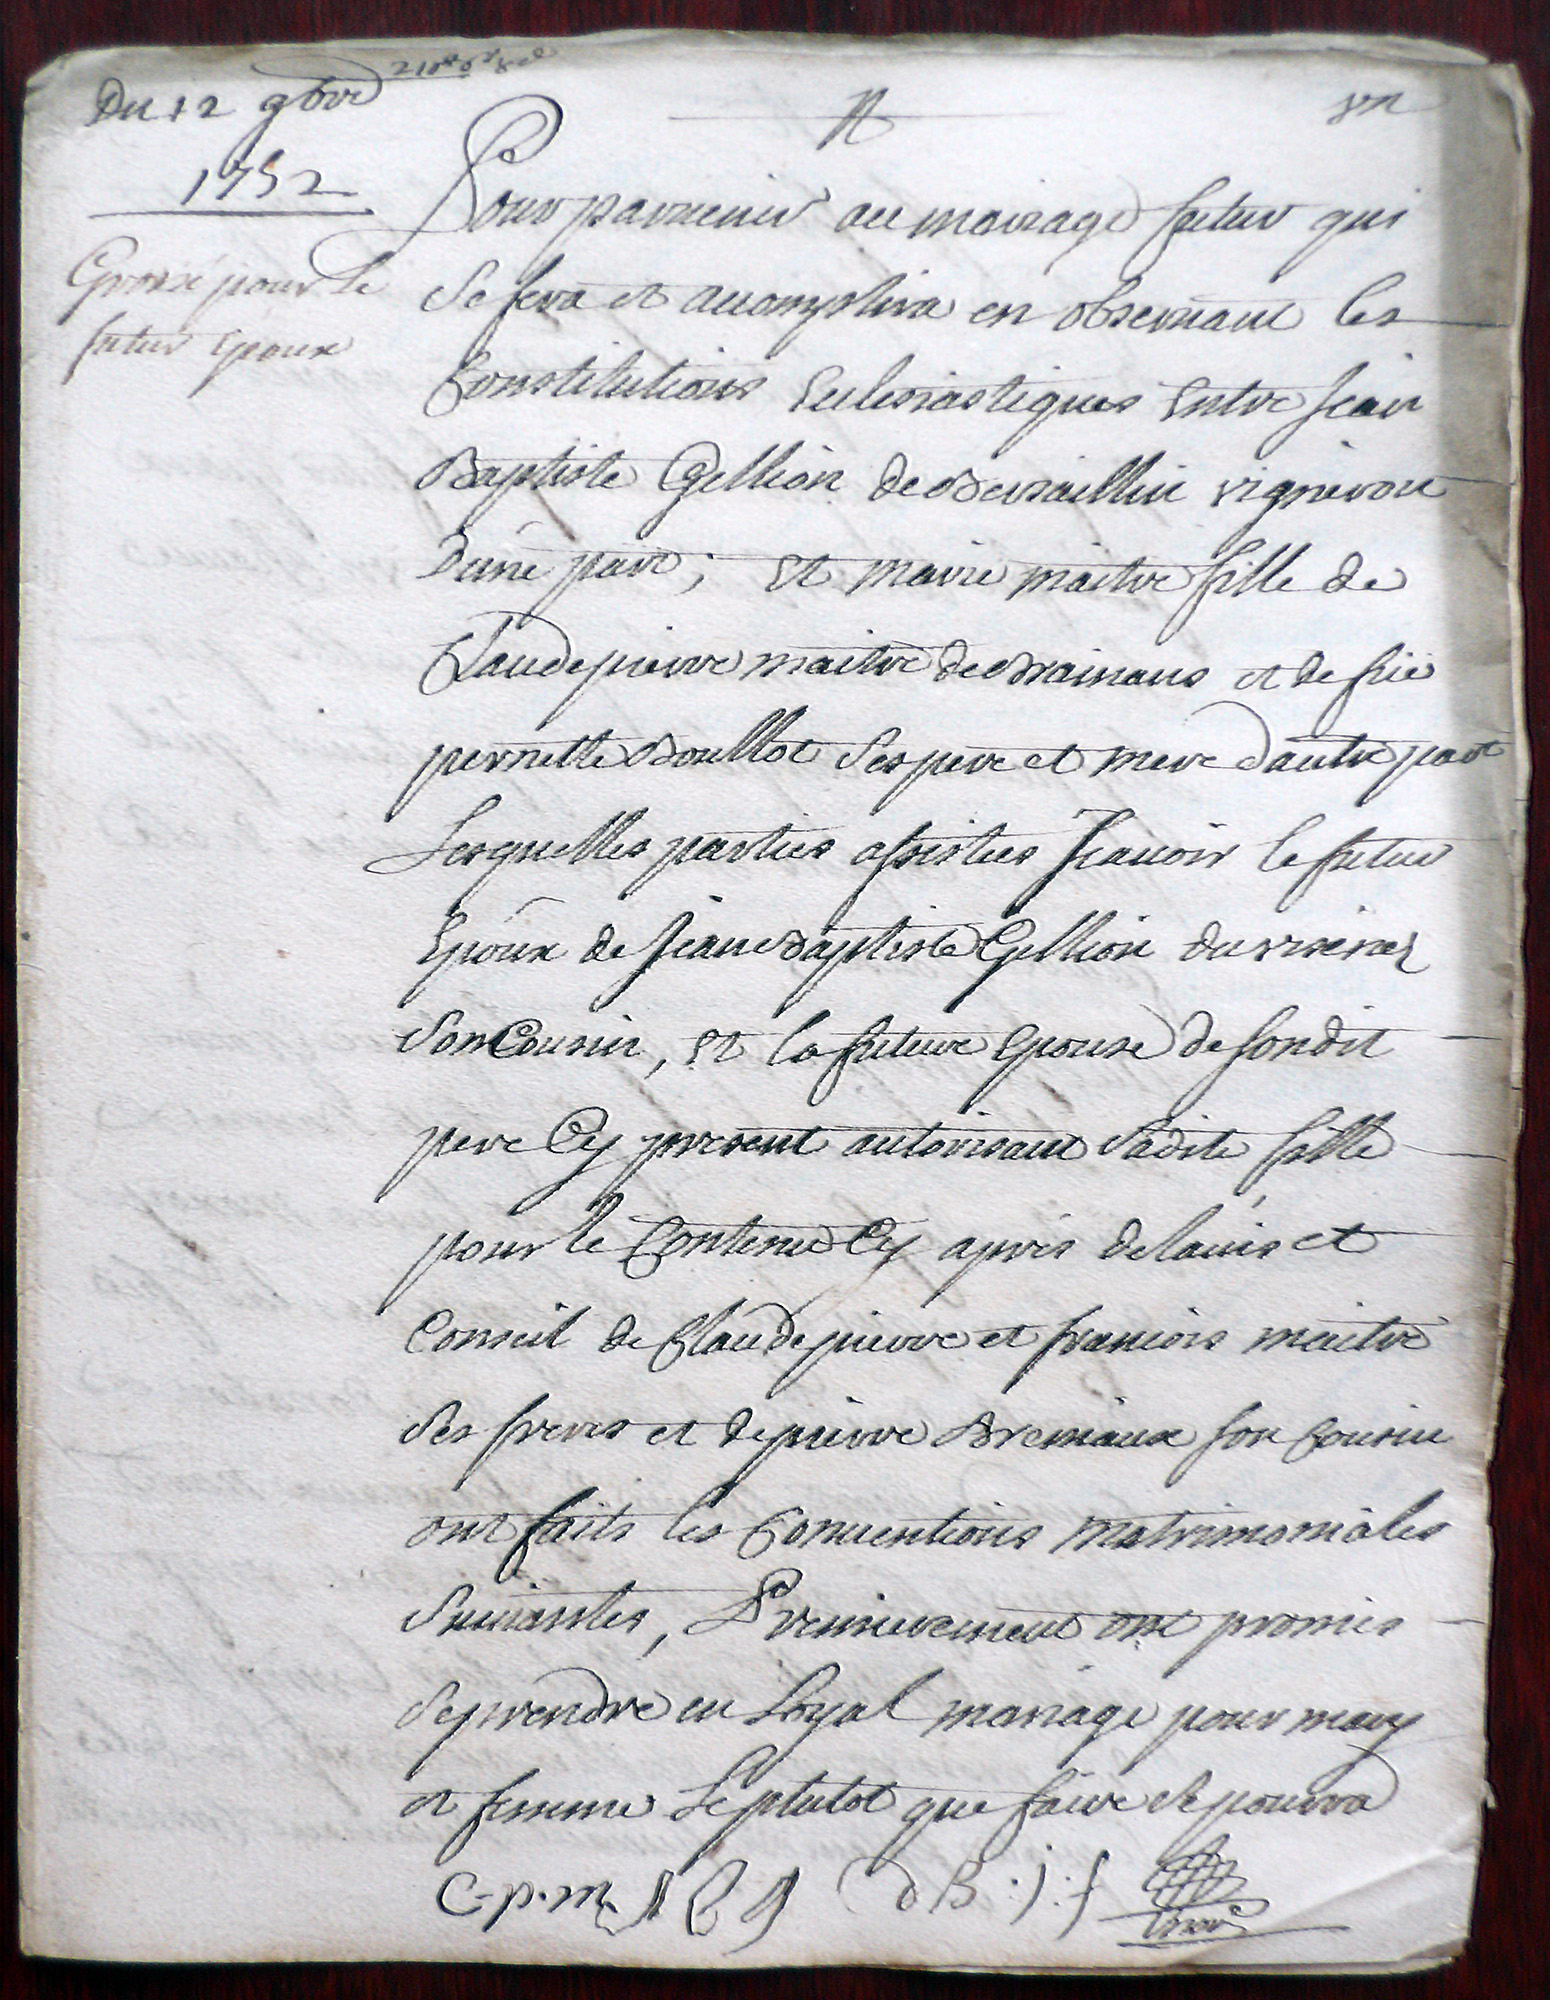 Du 12 9bre
1752
Grossé pour le
futur Epoux
Pour parvenir au mariage futur qui
Se fera et accomplira en observant les
Constitutions Eclesiastiques Entre Jean
Baptiste Gellion de Bersaillin vigneron
d'une part ; Et Marie maitre fille de
Claude pierre maitre de Brainans et de fue
pernette Boullot Ses pere et mere d'autre part
Lesquelles parties assistées Scauoir le futur
Epoux de Jean Baptiste Gellion du
Son Cousin, Et la future Epouse de Sondit
pere Cy present autorisant Sadite fille
pour le Contenu Cy apres de lauis et
Conseil de Claude pierre et francois maitre
Ses freres et de pierre Breniaux Son Cousin
ont faits les Conuentions matrimoniales
Suiuantes, Premierement ont promis
Se prendre en Loyal mariage pour mary
et femme Le plutot que faire Se pourra
C-p.m